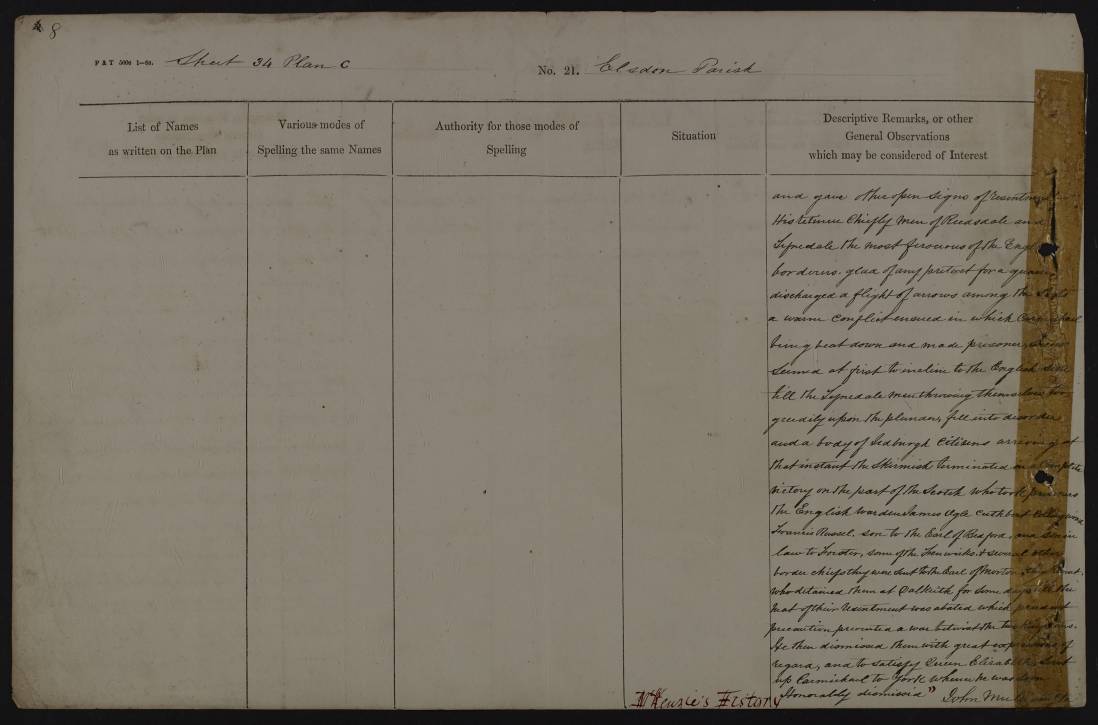 8
F & T 500s 1–68. Sheet 34 Plan C
No. 21. Elsdon Parish
List of Names
as written on the Plan
Various modes of
Spelling the same Names
Authority for those modes of
Spelling
Situation
Descriptive Remarks, or other
General Observations
which may be considered of Interest
and gave other open signs of
His retinue Chiefly men of Reedsdale and
Tynedale the most ferocious of the Engl
borderers. glad of any pretext for a
discharged a flight of arrows among the
a warm Conflict ensued in which
being beat down and made prisoner,
seemed at first to incline to the English side
till the Tynedale men throwing themselves too
greedily upon the plunder, fell into disorder
and a body of Jedburgh Citizens arriving at
that instant the Skirmish terminated in a complete
victory on the part of the Scotch who took prisoners
the English warden James Ogle Cuthbert Collingwood
Francis Russel. son to the Earl of Bedford, and son in
law to Forster, some of the Fenwicks & several other
border chiefs they were sent to the Earl of Morton
who detained them at Dalkeith for some days till the
heat of their resentment was abated which prudent
precaution prevented a war betwixt the two kingdoms.
He then dismissed them with great expressions of
regard, and to satisfy Queen Elizabeth, sent
up Carmichael to York whence he was soon
Honorably dismissed" John
McKenzie's History